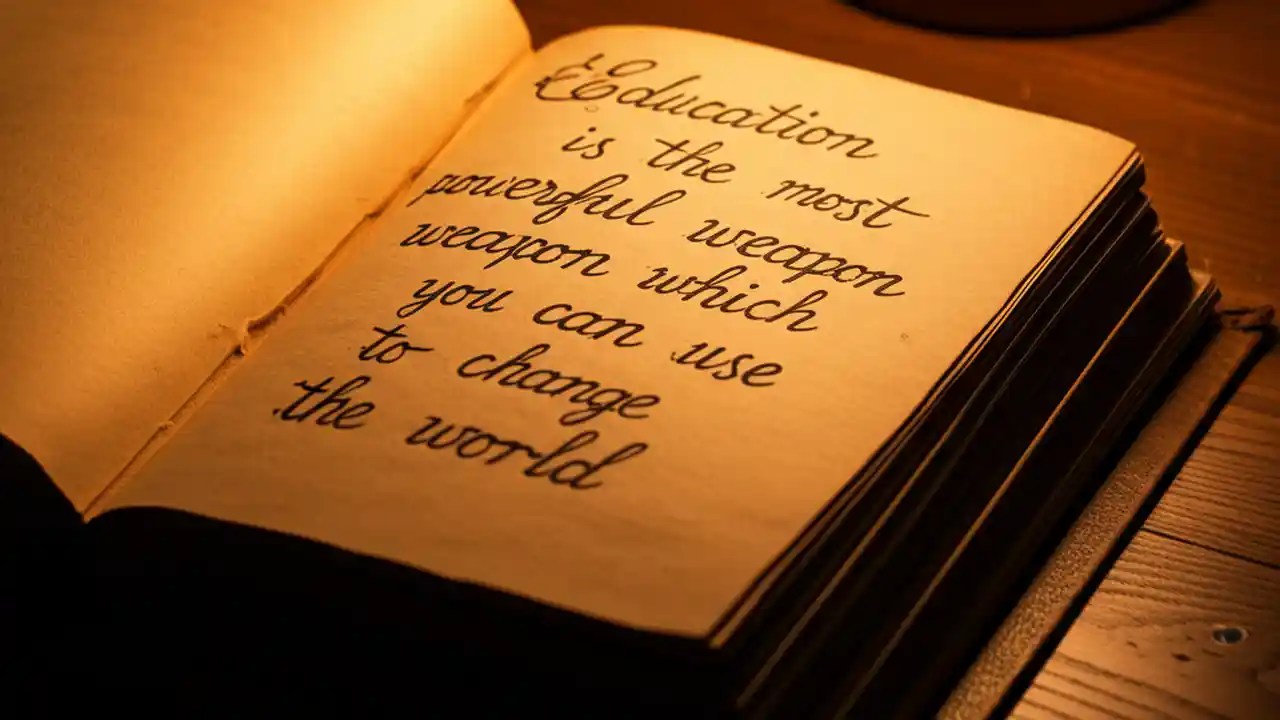 Education
is the most
powerful weapon
weapon which
you can use
to change
the world